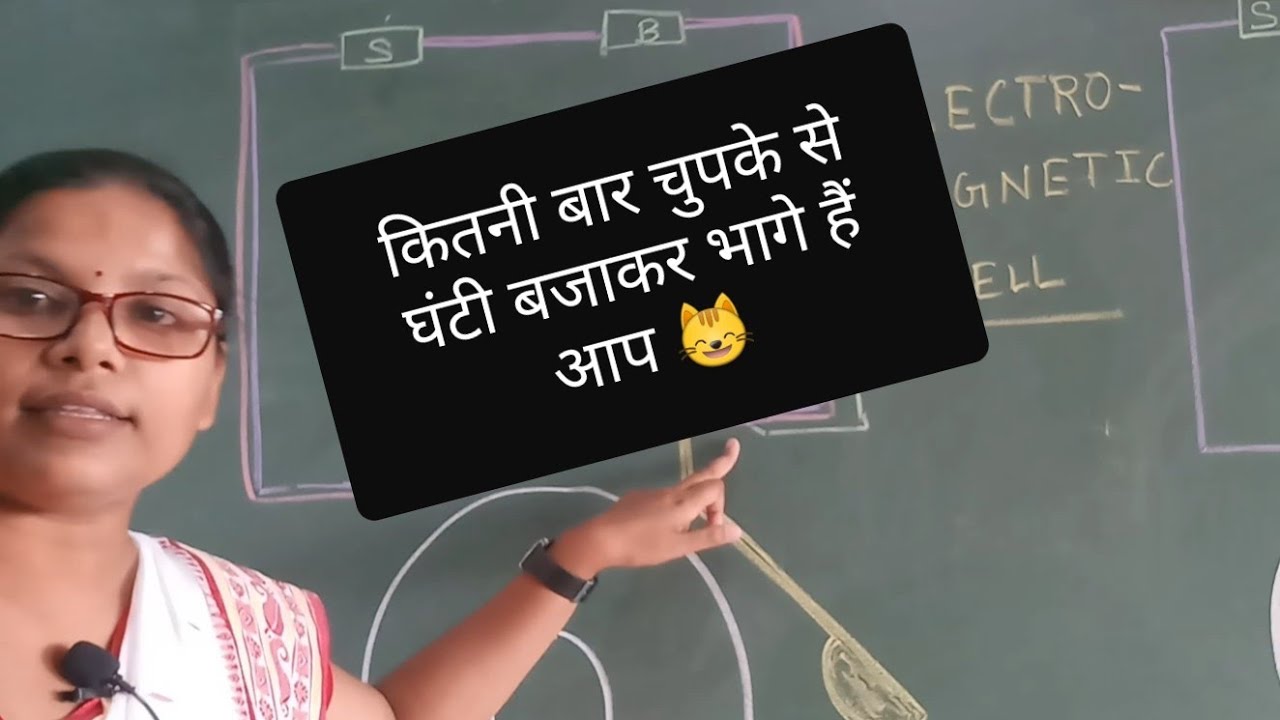 S
B
S
कितनी बार चुपके से
घंटी बजाकर भागे हैं
आप 😸
ECTRO-
GNETIC
ELL